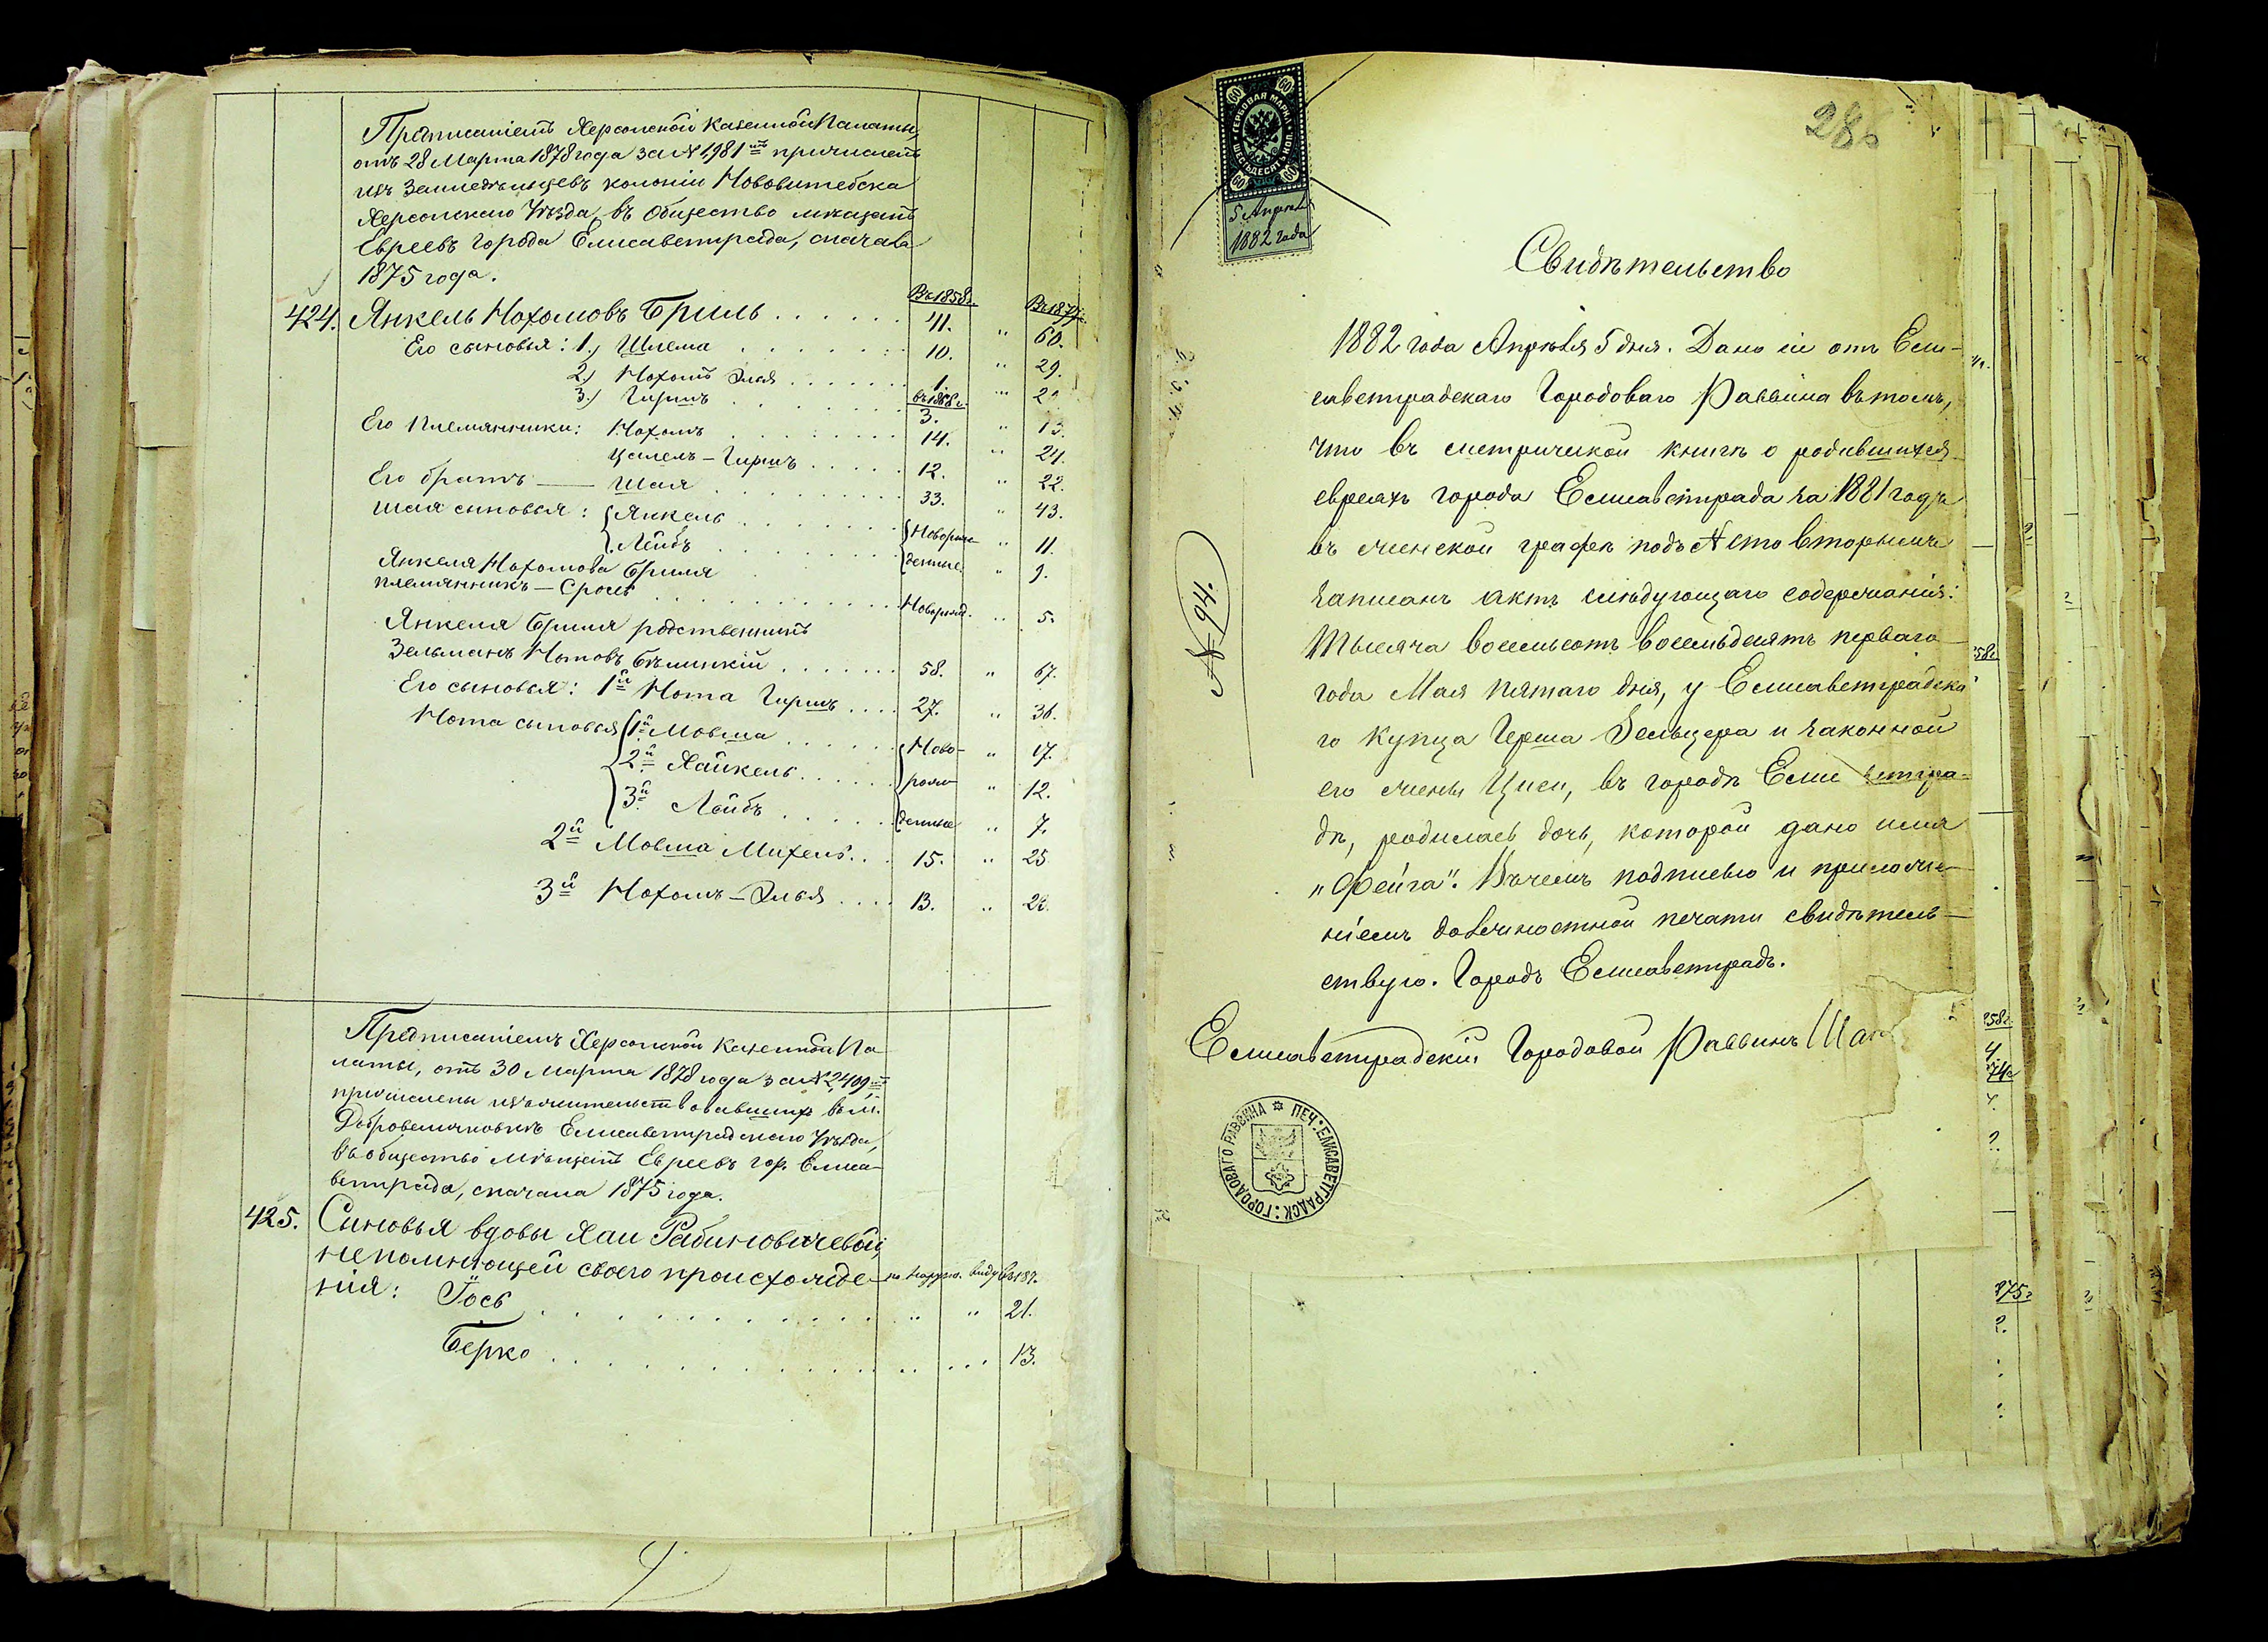 Предписаніемъ Херсонской Казенной Палаты,
отъ 28 Марта 1878 года за № 1,981мъ причисленъ
изъ Земледѣльцевъ колоніи Нововитебска
Херсонскаго Уѣзда, въ общество мѣщанъ
Евреевъ города Елисаветграда, сначала
1875 года.
Въ 1858 г. Въ 1877 г.
424. Янкель Нохомовъ Бриль . . . . . . 41. " 60.
Его сыновья: 1.) Шлема . . . . . . . 10. " 29.
2.) Нохомъ Элья . . . . . . 1. "
3.) Гиршъ . . . . . . 3. " 13.
Его Племянники: Нохомъ . . . . . . 14. " 24.
Цалель-Гиршъ . . . . . 12. " 22.
Его братъ — Шая . . . . . . . . 33. " 43.
Шая сыновья: Янкель . . . . . . Новорож- " 11.
Лейбъ . . . . . . денные. " 9.
Янкеля Нохомова Бриля
племянникъ — Сроль . . . . . . . . . . Новорожд. " 5.
Янкеля Бриля родственникъ
Зельманъ Нотовъ Бѣлицкій . . . . . . . 58. " 67.
Его сыновья: 1й Нота Гиршъ . . . . 27. " 36.
Нота сыновья 1й Мовша . . . . . . Ново- " 17.
2й Хайкель . . . . . . рож- " 12.
3й Лейбъ . . . . . . денные " 7.
2й Мовша Михель . . . 15. " 25
3й Нохомъ-Элья . . . . 13. "
Предписаніемъ Херсонской Казенной Па-
латы, отъ 30 Марта 1878 года за № 2,409мъ
причислены изъ жительствовавшихъ въ м.
Добровеличковкѣ Елисаветградскаго Уѣзда,
въ общество мѣщанъ Евреевъ гор. Елиса-
ветграда, сначала 1875 года.
425. Сыновья вдовы Хаи Рабиновичевой,
непомнющей своего происхожде- по наружн. виду въ 187.
нія: Іось . . . . . . . . . . " " 21.
Берко . . . . . . . . . . 13.
ГЕРБОВАЯ МАРКА
ШЕСТЬДЕСЯТЪ КОП.
60 60
60 60
5 Апрѣля
1882 года
286
Свидѣтельство
1882 года Апрѣля 5 дня. Дано сіе отъ Ели-
саветградскаго Городоваго Раввина въ томъ,
что въ метрической книгѣ о родившихся
евреяхъ города Елисаветграда за 1881 годъ
въ женской графѣ подъ № сто вторымъ
записанъ актъ слѣдующаго содержанія:
Тысяча восемьсотъ восемьдесятъ перваго
года Мая пятаго дня, у Елисаветградска-
го купца Герша Зельцера и законной
его жены Циси, въ городѣ Елис ветгра-
дѣ, родилась дочь, которой дано имя
"Фейга". Въ чемъ подписью и приложе-
ніемъ должностной печати свидѣтель-
ствую. Городъ Елисаветградъ.
Елисаветградскій Городовой Раввинъ
№ 94.
ПЕЧ: ЕЛИСАВЕТГРАДСК: ГОРОДОВАГО РАВВИНА